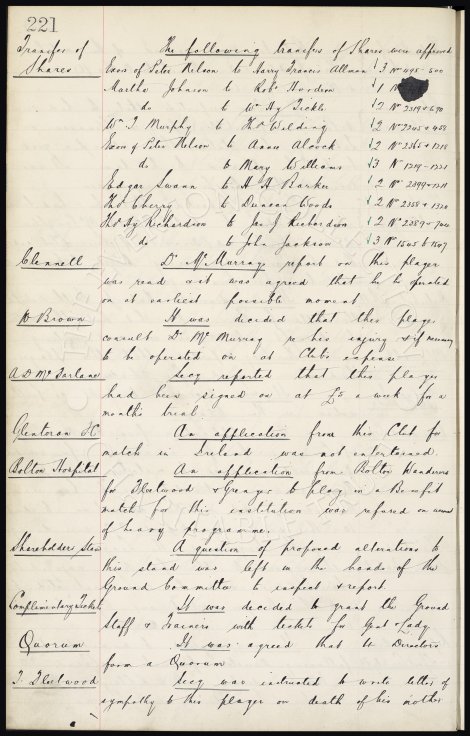 221
Transfer of Shares
The following transfers of Shares were approved
Exors of Peter Nelson to Harry Francis Allman 3 No 498-500
Martha Johnson to Robt 1 N
do to Wm Hy Tickle 2 No 2319 + 690
Wm J Murphy to Thos Welding 2 No
Exors of Peter Nelson to Annie Alcock 2 No
do to Mary Williams 3 No 1219-1221
Edgar Swann to H H Barker 2 No
Thos Cherry to Duncan Woods 2 No 2358 + 1320
Thos Hy Richardson to Jas J Richardson 2 No
do to John Jackson 3 No 1545 to 1547
Clennell
Dr McMurray report on this player
was read & it was agreed that he be operated
on at earliest possible moment
W Brown
It was decided that this player
consult Dr McMurray re his injury & if necessary
to be operated on at Clubs expense
A D McFarlane
Secy reported that this player
had been signed on at £5 a week for a
months trial
Glentoran FC
An application from this Club for
match in Ireland was not entertained
Bolton Hospital
An application from Bolton Wanderers
for Fleetwood & Grenyer to play in a Benefit
match for this institution was refused on account
of heavy programme.
Shareholders Stand
A question of proposed alterations to
this stand was left in the hands of the
Ground Committee to inspect & report
Complimentary Tickets
It was decided to grant the Ground
Staff & Trainers with tickets for Gent & Lady
Quorum
It was agreed that 4 Directors
form a Quorum
T. Fleetwood
Secy was instructed to write letter of
sympathy to this player on death of his mother